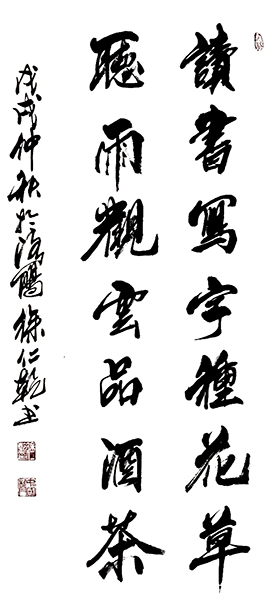 讀書寫字種花草
聽雨觀雲品酒茶
戊戌仲秋於洛陽徐仁乾書